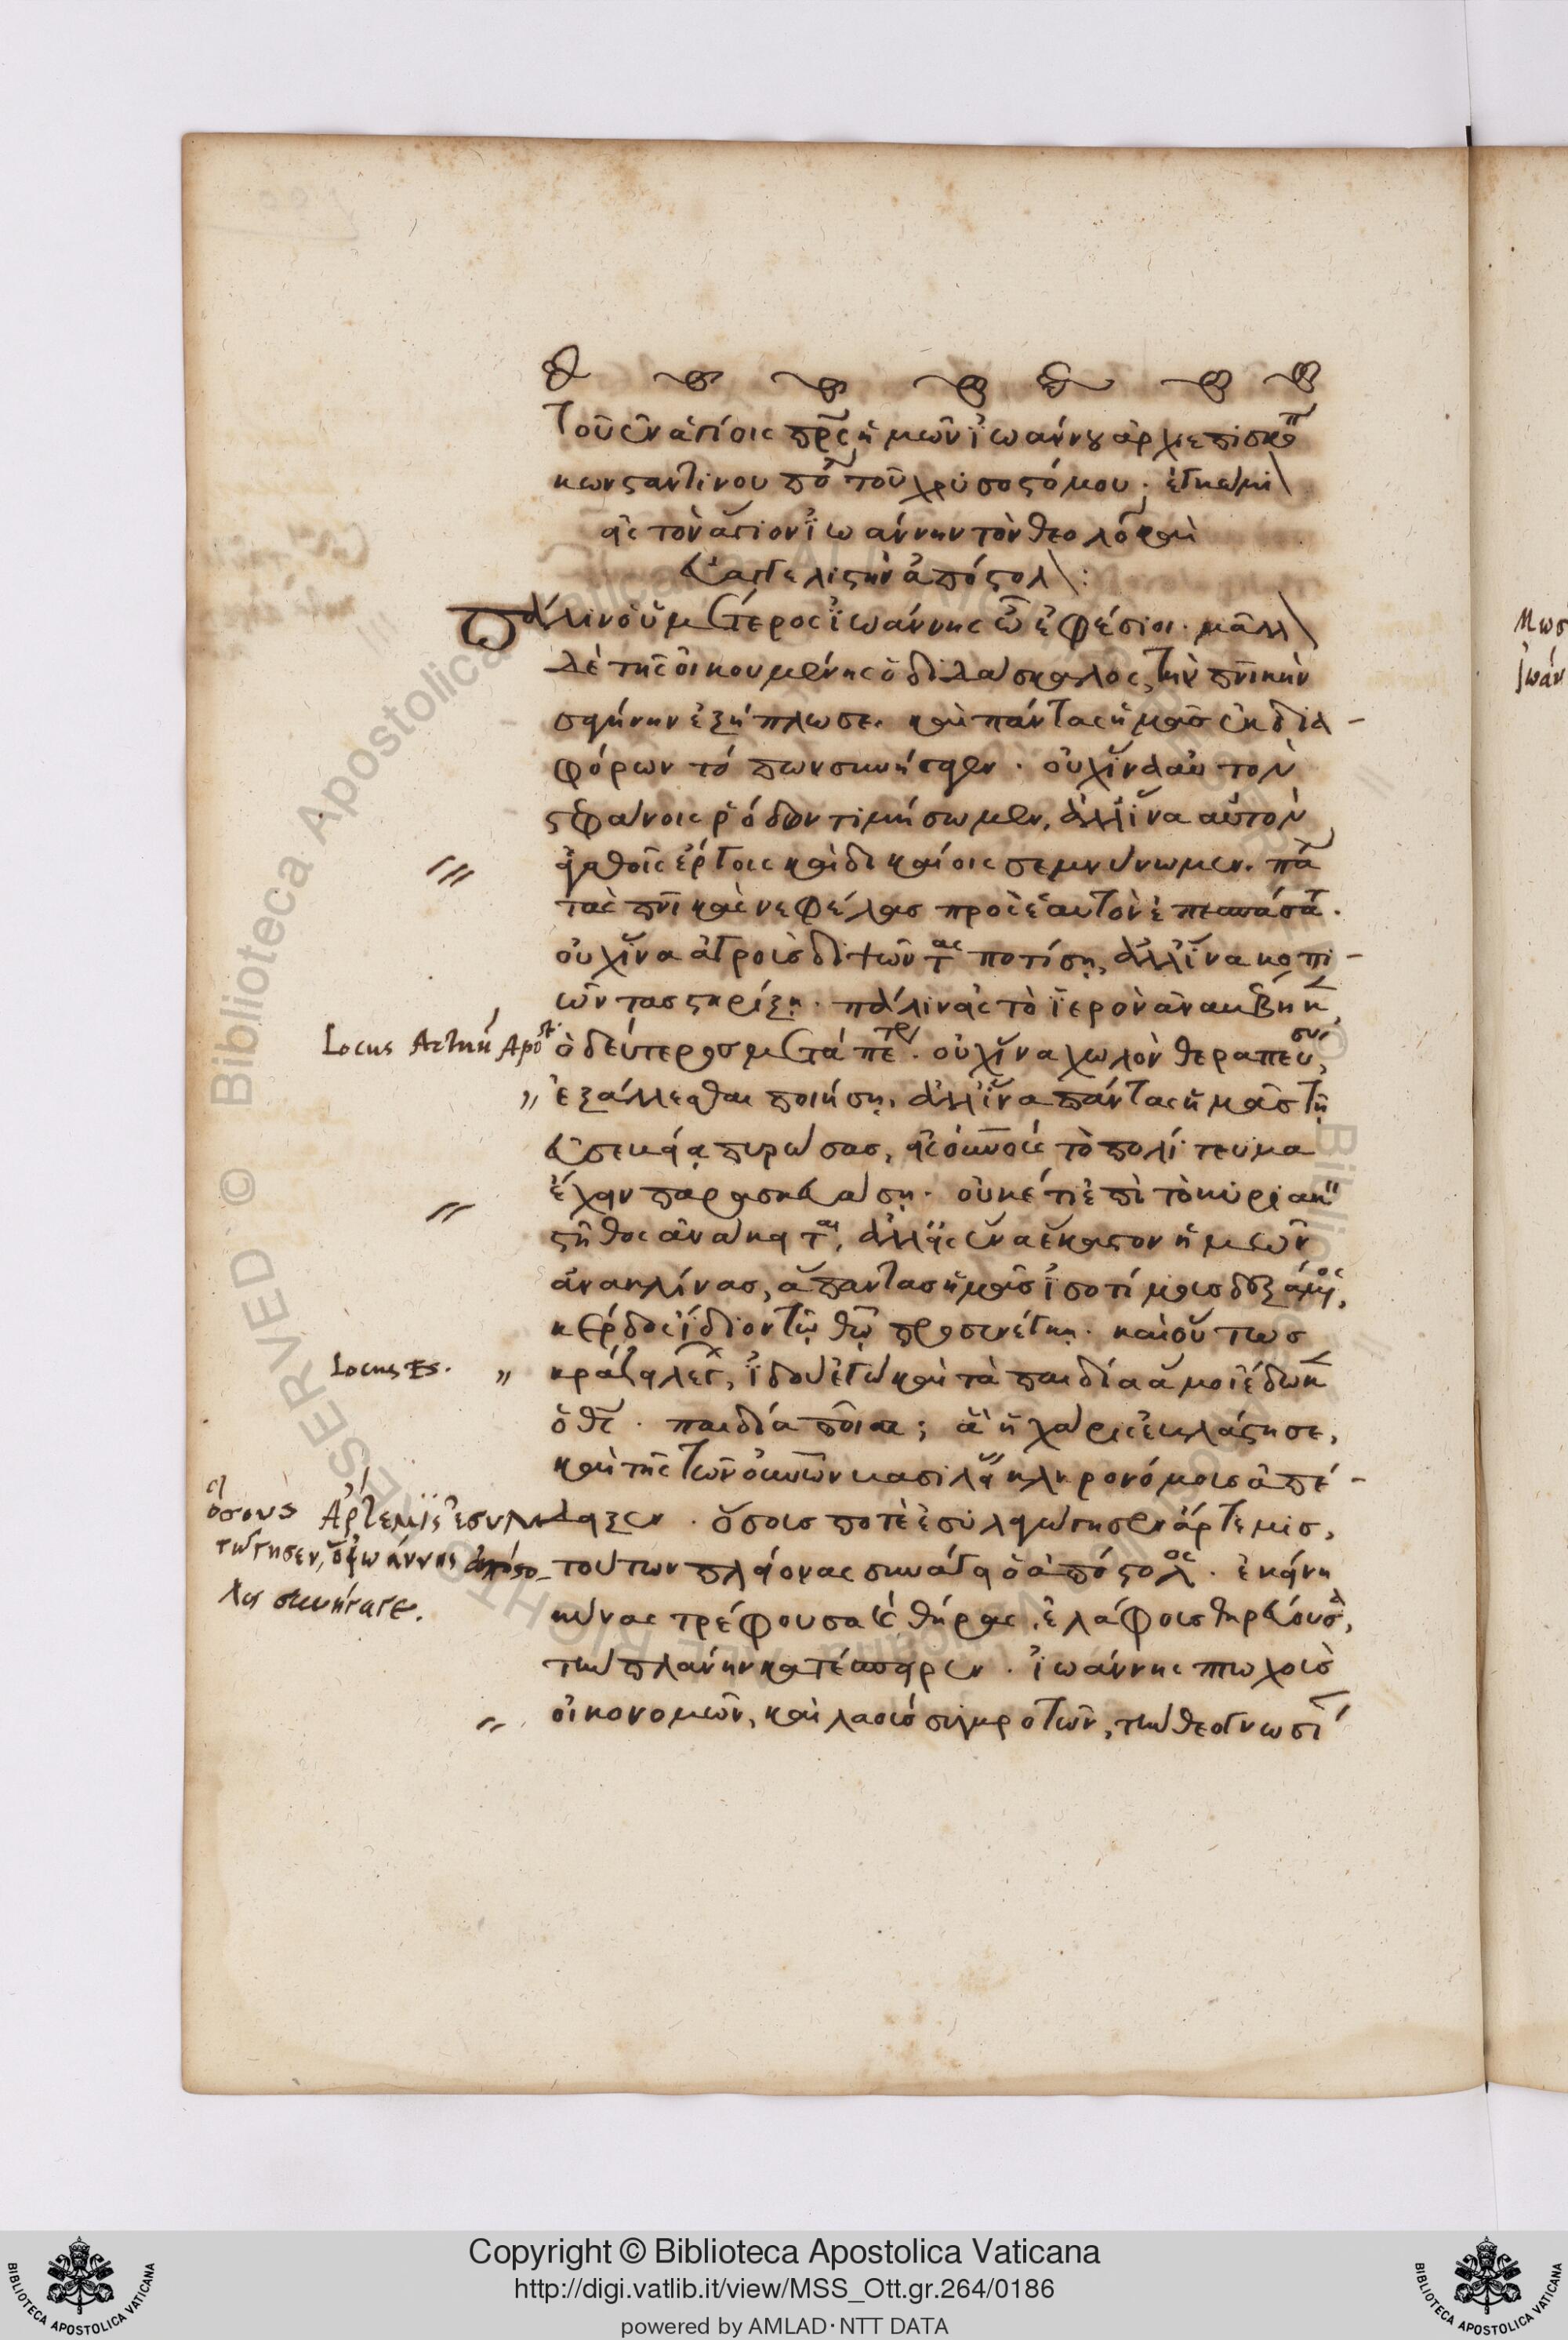 Τοῦ ἐν ἁγίοις πρς ἡμῶν ἰωάννου ἀρχιεπισκοπ
κωνσταντίνου πό τοῦ χρυσοστόμου· ἐγκώμι
εἰς τὸν ἅγιον ἰωάννην τὸν θεολόγ καὶ
εὐαγγελιστὴν ἀπόστολ:
Πάλιν ὁ ὑμέτερος ἰωάννης ὦ ἐφέσιοι· μᾶλλ
δὲ τῆς οἰκουμένης ὁ διδάσκαλος, τὴν πνικὴν
σαγήνην ἐξήπλωσε. καὶ πάντας ἡμᾶς ἐκ δια-
φόρων τόπων συνήγαγεν· οὐχ ἵνα αὐτὸν
στεφάνοις ῥόδων τιμήσωμεν, ἀλλ' ἵνα αὐτὸν
ἀγαθοῖς ἔργοις καὶ δικαίοις σεμνύνωμεν. πα
τὰς πνικὰς νεφέλας πρὸς ἑαυτὸν ἐπεσπάσατ.
οὐχ ἵνα ἀγροὺς διψῶντας ποτίσῃ, ἀλλ' ἵνα κοπι-
ῶντας στηρίξῃ· πάλιν εἰς τὸ ἱερὸν ἀναβέβηκ,
ὁ δεύτερος μετὰ πέτρ. οὐχ ἵνα χωλὸν θεραπεύσ,
ἐξάλλεσθαι ποιήσῃ, ἀλλ' ἵνα πάντας ἡμᾶς τῇ
εὐσεβείᾳ πυρώσας, εἰς οὐνοὺς τὸ πολίτευμα
ἔχειν παρασκευάσῃ· οὐκέτι ἐπὶ τὸ κυριακὸν
στῆθος ἀνάκειται, ἀλλ' εἰς ἕνα ἕκαστον ἡμῶν
ἀνακλίνας, ἅπαντας ἡμᾶς ἰσοτίμους δεξάμενος,
κέρδος ἴδιον τῷ θῷ προσενέγκῃ· καὶ οὕτως
κράζει λέγ, ἰδοὺ ἐγὼ καὶ τὰ παιδία ἅ μοι ἔδωκ
ὁ θς· παιδία ποῖα; ἃ ἡ χάρις ἐβλάστησε,
καὶ τῆς τῶν οὐνῶν βασιλείας κληρονόμους ἀπέ-
δειξεν· ὅσους ποτὲ ἐσυλαγώγησεν ἄρτεμις,
τούτων πλείονας συνάγει ὁ ἀπόστολος· ἐκείνη
κύνας τρέφουσα καὶ θῆρας, ἐλάφους θηρεύουσα,
τὴν πλάνην κατέσπειρεν· ἰωάννης πτωχοὺς
οἰκονομῶν, καὶ λαοὺς συγκροτῶν, τὴν θεογνωσί
Locus Actuũ Apost.
Locus Es.
ὅσους Ἄρτεμις ἐσυλα
γώγησεν, ὁ ἰωάννης ἀπόστο-
λος συνήγαγε.
Μωσ
ἰωάν
Copyright © Biblioteca Apostolica Vaticana
http://digi.vatlib.it/view/MSS_Ott.gr.264/0186
powered by AMLAD·NTT DATA
BIBLIOTECA APOSTOLICA VATICANA
BIBLIOTECA APOSTOLICA VATICANA